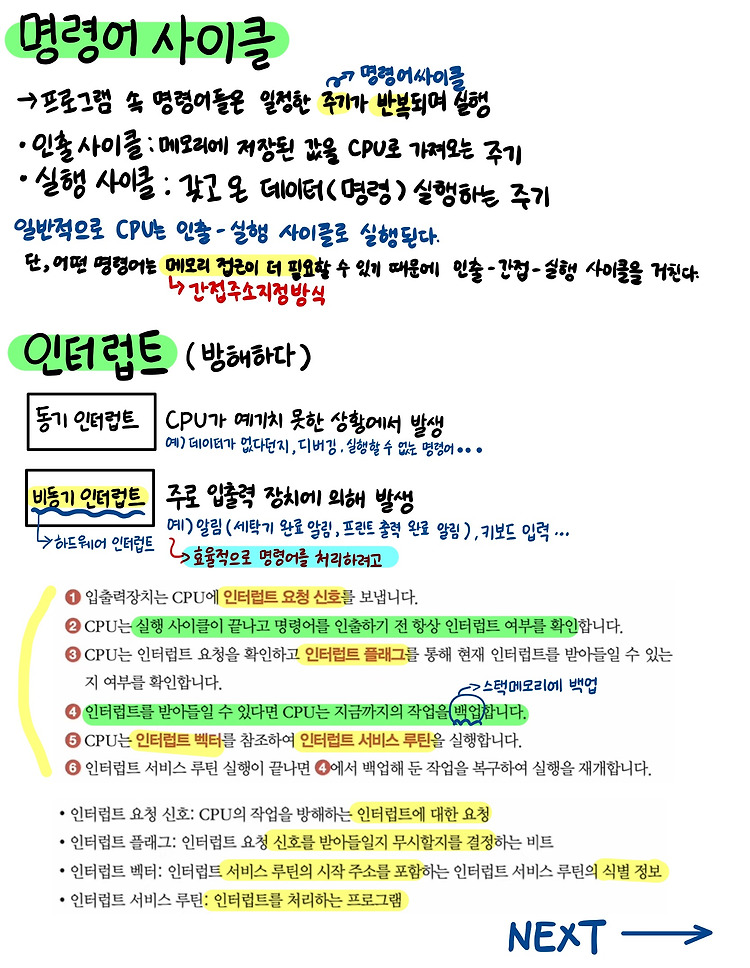 명령어 사이클
→ 명령어싸이클
→ 프로그램 속 명령어들은 일정한 주기가 반복되며 실행
• 인출 사이클 : 메모리에 저장된 값을 CPU로 가져오는 주기
• 실행 사이클 : 갖고 온 데이터(명령) 실행하는 주기
일반적으로 CPU는 인출-실행 사이클로 실행된다.
단, 어떤 명령어는 메모리 접근이 더 필요할 수 있기 때문에 인출-간접-실행 사이클을 거친다.
→ 간접주소지정방식
인터럽트 (방해하다)
동기 인터럽트 CPU가 예기치 못한 상황에서 발생
예) 데이터가 없다던지, 디버깅, 실행할 수 없는 명령어...
비동기 인터럽트 주로 입출력 장치에 의해 발생
예) 알림 (세탁기 완료 알림, 프린트 출력 완료 알림), 키보드 입력...
→ 하드웨어 인터럽트
→ 효율적으로 명령어를 처리하려고
❶ 입출력장치는 CPU에 인터럽트 요청 신호를 보냅니다.
❷ CPU는 실행 사이클이 끝나고 명령어를 인출하기 전 항상 인터럽트 여부를 확인합니다.
❸ CPU는 인터럽트 요청을 확인하고 인터럽트 플래그를 통해 현재 인터럽트를 받아들일 수 있는
지 여부를 확인합니다.
→ 스택메모리에 백업
❹ 인터럽트를 받아들일 수 있다면 CPU는 지금까지의 작업을 백업합니다.
❺ CPU는 인터럽트 벡터를 참조하여 인터럽트 서비스 루틴을 실행합니다.
❻ 인터럽트 서비스 루틴 실행이 끝나면 ❹에서 백업해 둔 작업을 복구하여 실행을 재개합니다.
• 인터럽트 요청 신호: CPU의 작업을 방해하는 인터럽트에 대한 요청
• 인터럽트 플래그: 인터럽트 요청 신호를 받아들일지 무시할지를 결정하는 비트
• 인터럽트 벡터: 인터럽트 서비스 루틴의 시작 주소를 포함하는 인터럽트 서비스 루틴의 식별 정보
• 인터럽트 서비스 루틴: 인터럽트를 처리하는 프로그램
NEXT →